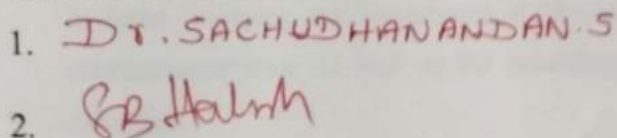 1. Dr. SACHUDHANANDAN. S
2. SB